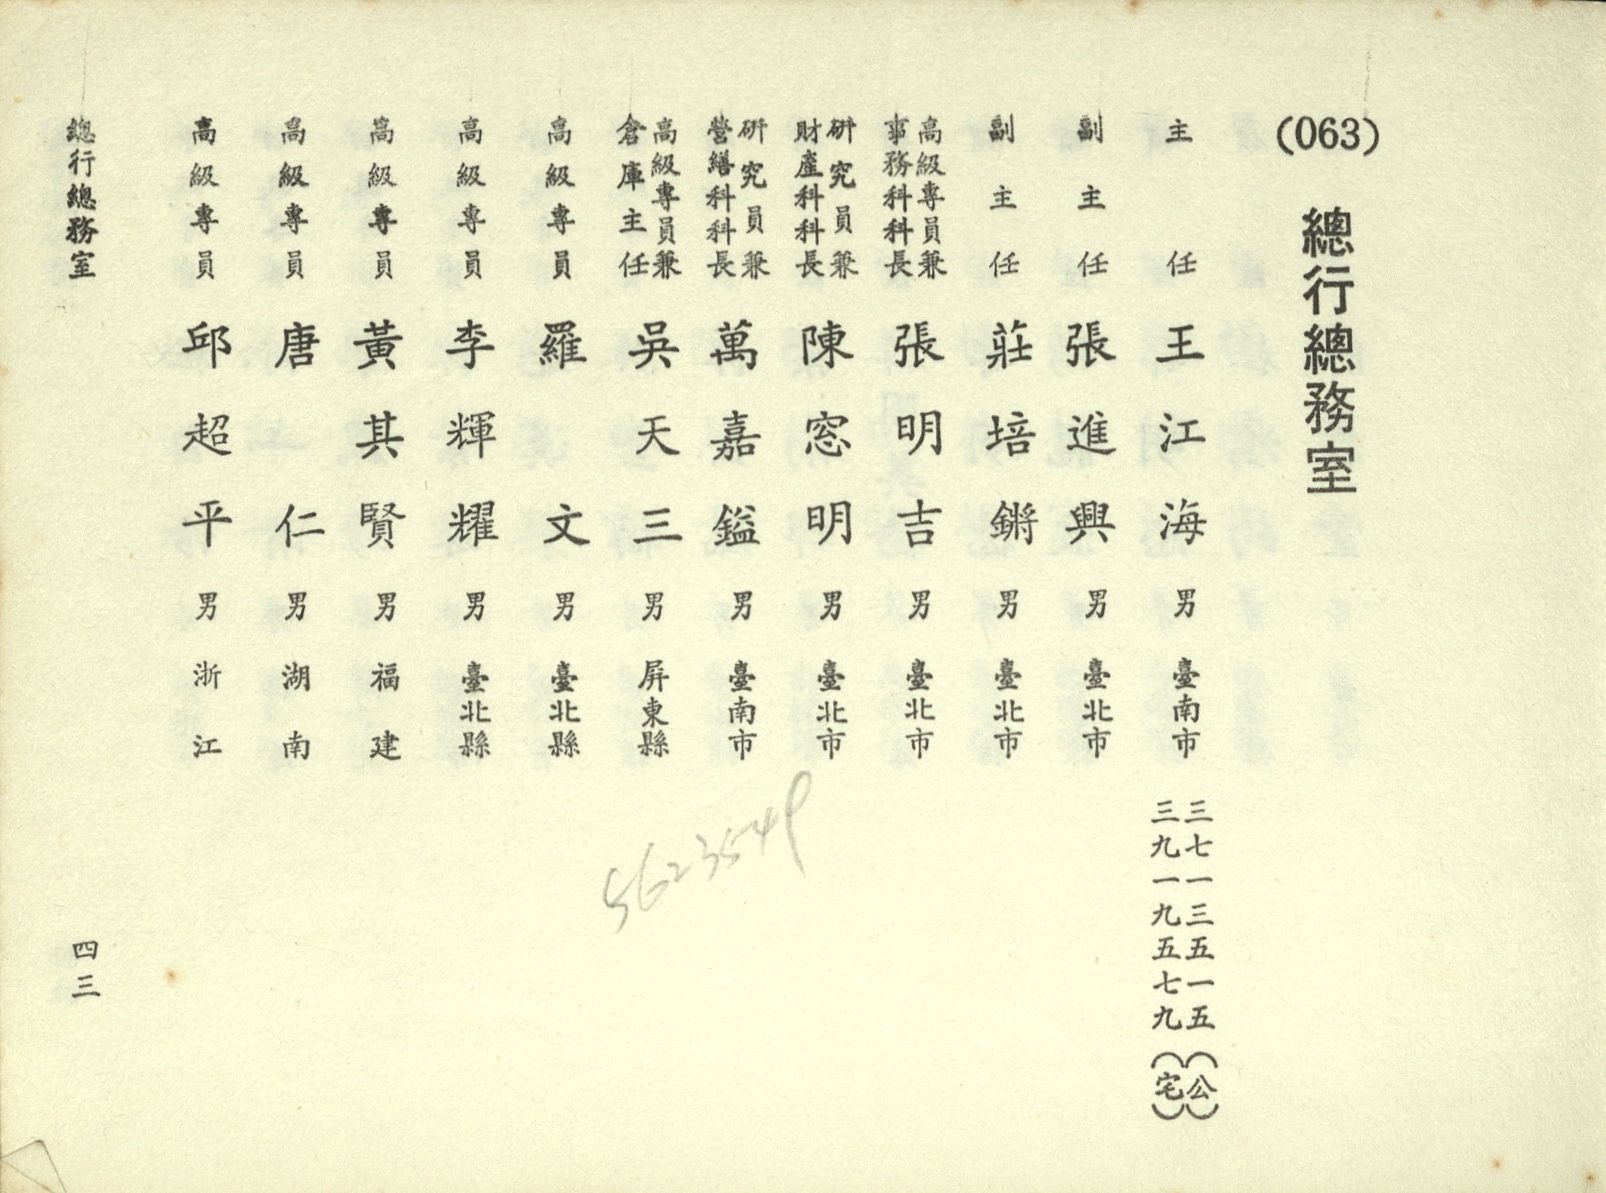 (063) 總行總務室
主任 王江海 男 臺南市 三七一三五一五(公)
三九一九五七九(宅)
副主任 張進興 男 臺北市
副主任 莊培鏘 男 臺北市
高級專員兼
事務科科長 張明吉 男 臺北市
研究員兼
財產科科長 陳窓明 男 臺北市
研究員兼
營繕科科長 萬嘉鎰 男 臺南市
高級專員兼
倉庫主任 吳天三 男 屏東縣
高級專員 羅文 男 臺北縣
高級專員 李輝耀 男 臺北縣
高級專員 黃其賢 男 福建
高級專員 唐仁 男 湖南
高級專員 邱超平 男 浙江
總行總務室 四三
5623549